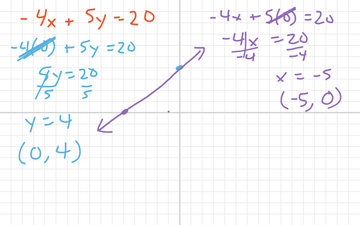 -4x + 5y = 20
-4(0) + 5y = 20
5y = 20
5 5
y = 4
(0, 4)
-4x + 5(0) = 20
-4x = 20
-4 -4
x = -5
(-5, 0)